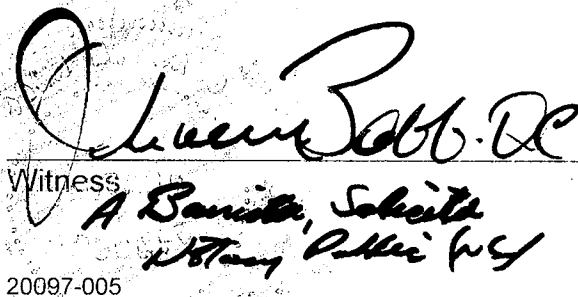 Babb. QC
Witness
A Barrister, Solicitor
Notary Public (NS)
20097-005